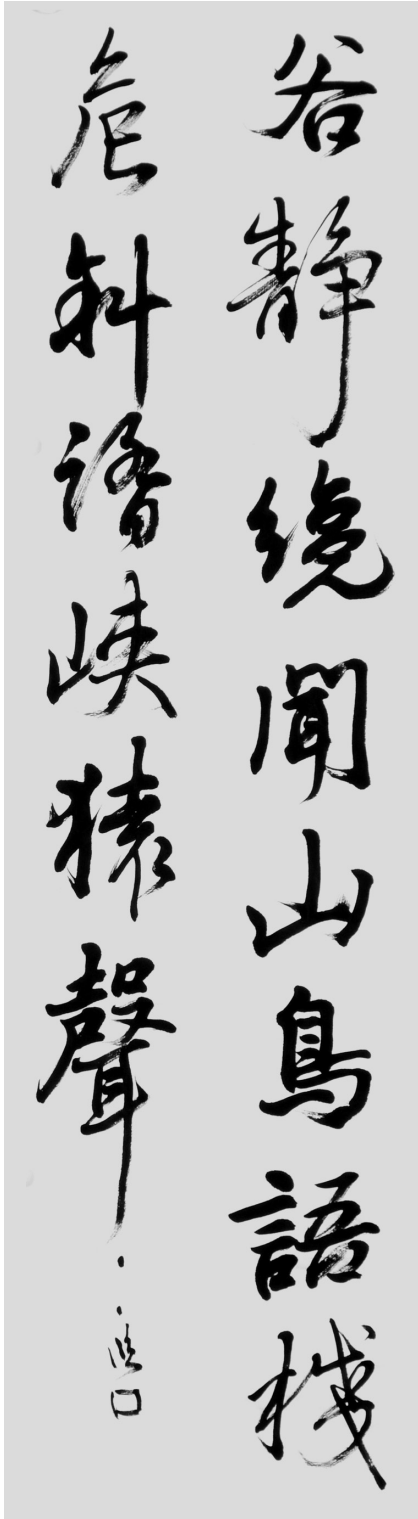 谷静纔聞山鳥語棧
危斜峽猿聲